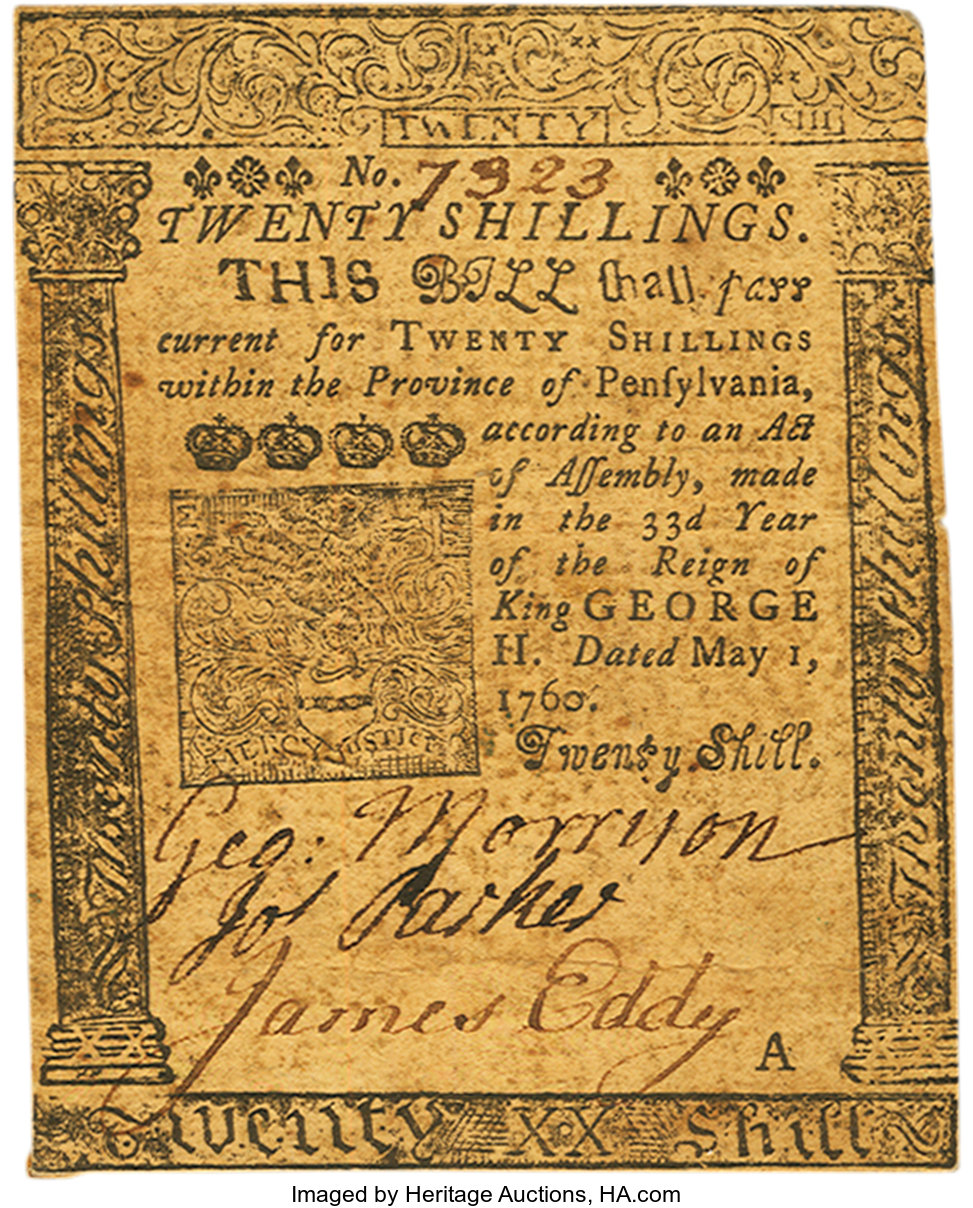 TWENTY SHIL
xx xx xx xx
No. 7323
TWENTY SHILLINGS.
THIS BILL ſhall paſſ
current for TWENTY SHILLINGS
within the Province of Penſylvania,
according to an Act
of Aſſembly, made
in the 33d Year
of the Reign of
King GEORGE
II. Dated May 1,
1760.
Twenty Shill.
MERCY JUSTICE
Twenty Shillings
Twenty Shillings
Geo: Morrison
Jos Parker
James Eddy
A
XX
Twenty XX Shill
Imaged by Heritage Auctions, HA.com